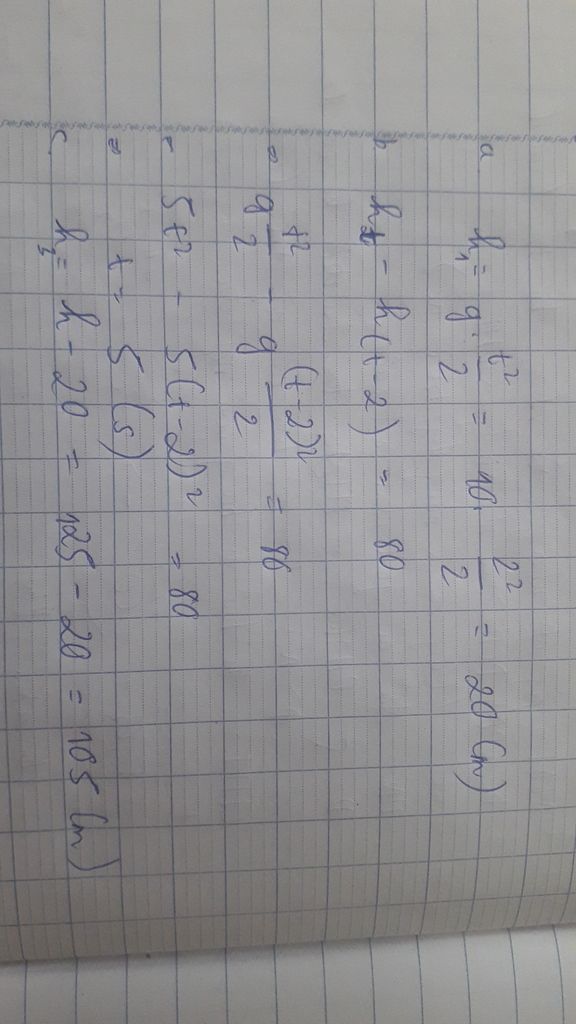 a h₁ = g . t²/2 = 10 . 2²/2 = 20 (m)
b h_t - h(t-2) = 80
⇔ g t²/2 - g (t-2)²/2 = 80
⇔ 5t² - 5(t-2)² = 80
⇔ t = 5 (s)
c. h₃ = h - 20 = 125 - 20 = 105 (m)